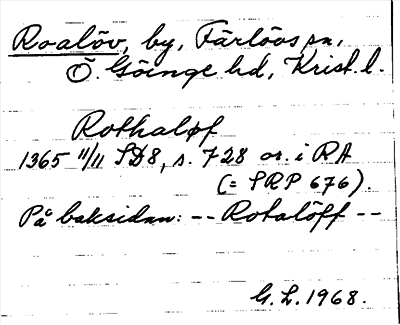 Roalöv, by, Färlövs sn,
Ö. Göinge hd, Krist. l.
Rothaløf
1365 11/11 SD8, s. 728 or. i RA
(= SRP 676).
På baksidan: -- Rotalöff --
G. L. 1968.